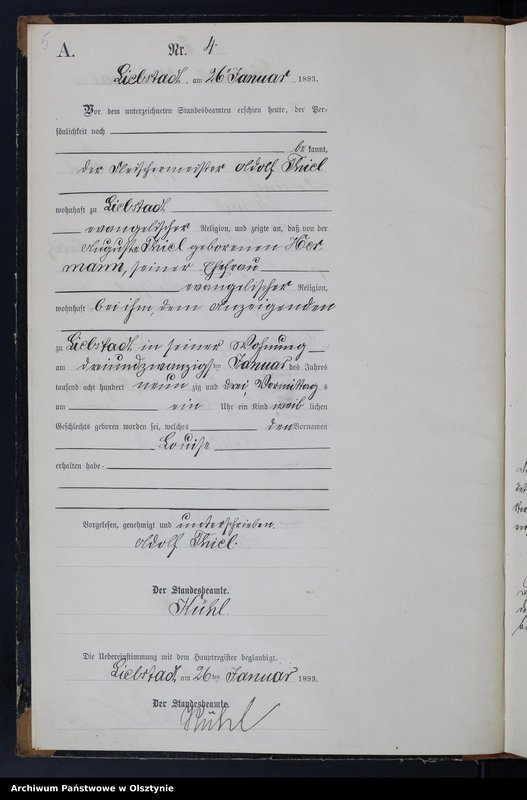 5
A.
Nr. 4
Liebstadt, am 26ten Januar 1893.
Vor dem unterzeichneten Standesbeamten erschien heute, der Per-
sönlichkeit nach
be kannt,
der Fleischermeister Adolf Thiel
wohnhaft zu Liebstadt
evangelischer Religion, und zeigte an, daß von der
Auguste Thiel geborenen Her
mann, seiner Ehefrau
evangelischer Religion,
wohnhaft bei ihm, dem Anzeigenden
zu Liebstadt in seiner Wohnung
am dreiundzwanzigsten Januar des Jahres
tausend acht hundert neun zig und drei, Vormittag s
um ein Uhr ein Kind weib lichen
Geschlechts geboren worden sei, welches den Vornamen
Louise
erhalten habe.
Vorgelesen, genehmigt und unterschrieben.
Adolf Thiel.
Der Standesbeamte.
Kühl.
Die Uebereinstimmung mit dem Hauptregister beglaubigt.
Liebstadt, am 26ten Januar 1893.
Der Standesbeamte.
Kühl
Archiwum Państwowe w Olsztynie